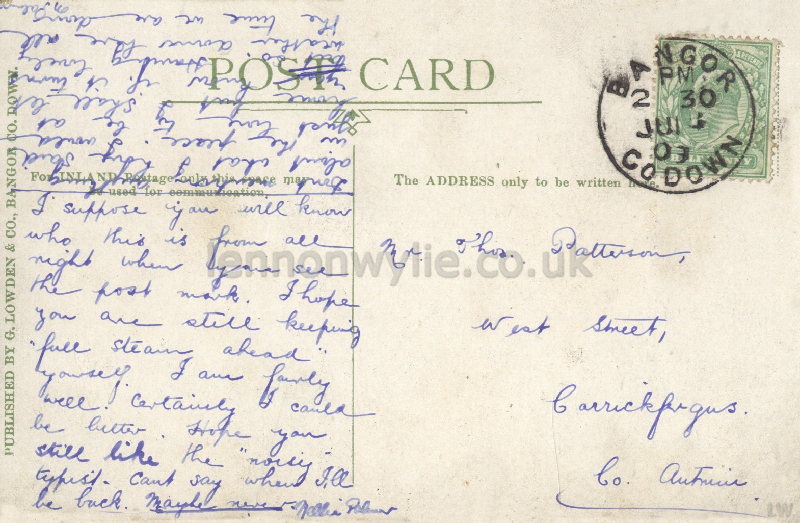 POST CARD
For INLAND Postage only this space may
be used for communication.
The ADDRESS only to be written here.
PUBLISHED BY G. LOWDEN & CO., BANGOR CO. DOWN.
BANGOR
PM
2 30
JU
CO DOWN
I suppose you will know
who this is from all
right when you see
the post mark. I hope
you are still keeping
"full steam ahead"
yourself. I am fairly
well. Certainly I could
be better. Hope you
still like the "noisy"
typist. Cant say when I'll
be back. Maybe never.
Nellie
Dont
about what I
in the peace. I would
just love to be at
home but I shall let
you know if it turns
out so. Having lovely
weather down here all
the time we are down
Mr. Thos. Patterson,
West Street,
Carrickfergus.
Co. Antrim
lennonwylie.co.uk
LW